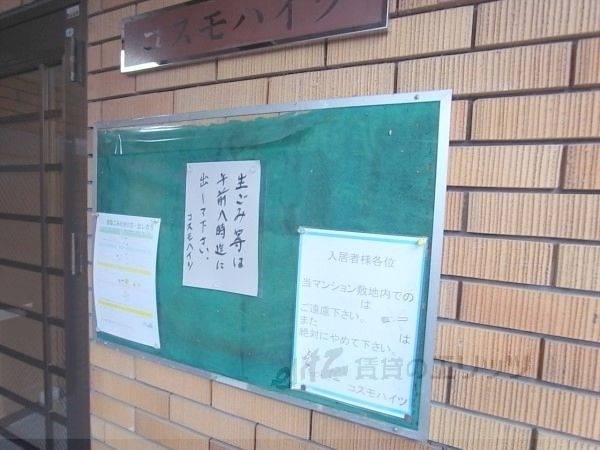 コスモハイツ
生ごみ等は
午前八時迄に
出して下さい。
コスモハイツ
入居者様各位
当マンション敷地内での
は
ご遠慮下さい。
また
は
絶対にやめて下さい。
コスモハイツ
賃貸のエリッツ